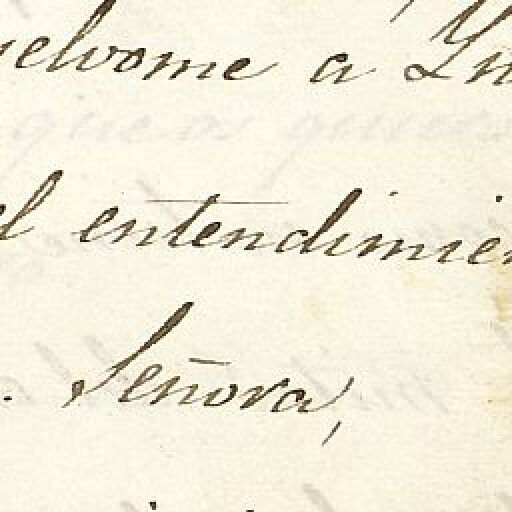 uelvome a
el entendimien
Señora,